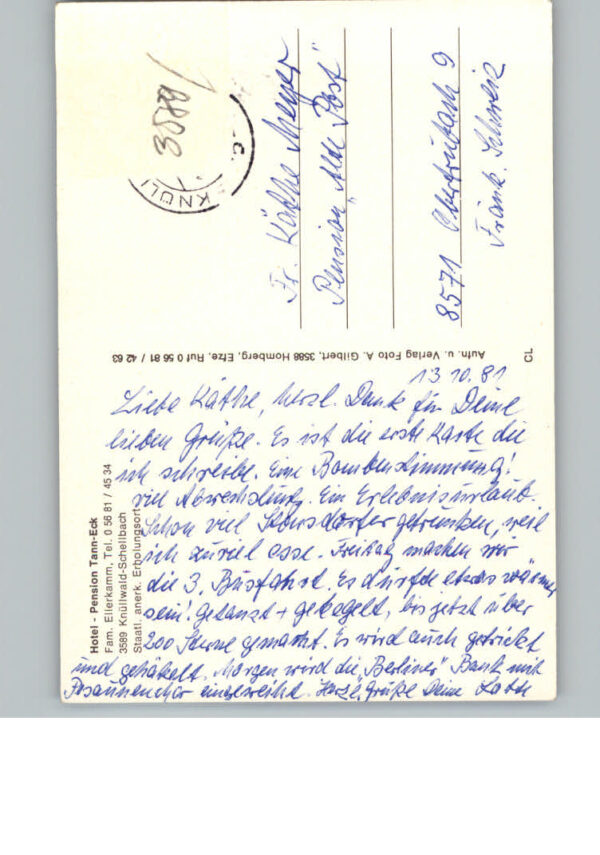 3589
KNÜLL
Fr. Käthe Meyer
Pension "Alte Post"
8571 Obertrubach 9
Fränk. Schweiz
Aufn. u. Verlag Foto A. Gilbert, 3588 Homberg, Efze, Ruf 0 56 81 / 42 63
CL
Hotel - Pension Tann-Eck
Fam. Ellerkamm, Tel. 0 56 81 / 45 34
3589 Knüllwald-Schellbach
Staatl. anerk. Erholungsort
13.10.81
Liebe Käthe, herzl. Dank für Deine
lieben Grüße. Es ist die erste Karte die
ich schreibe. Eine Bombenstimmung!
viel Abwechslung. Ein Erlebnisurlaub.
Schon viel Stonsdorfer getrunken, weil
ich zuviel esse. Freitag machen wir
die 3. Busfahrt. Es dürfte etwas wärmer
sein! Getanzt + gekegelt, bis jetzt über
200 Sterne gemacht. Es wird auch gestrickt
und gehäkelt. Morgen wird die "Berliner" Bank mit
Posaunenchor eingeweiht. Herzl. Grüße Deine